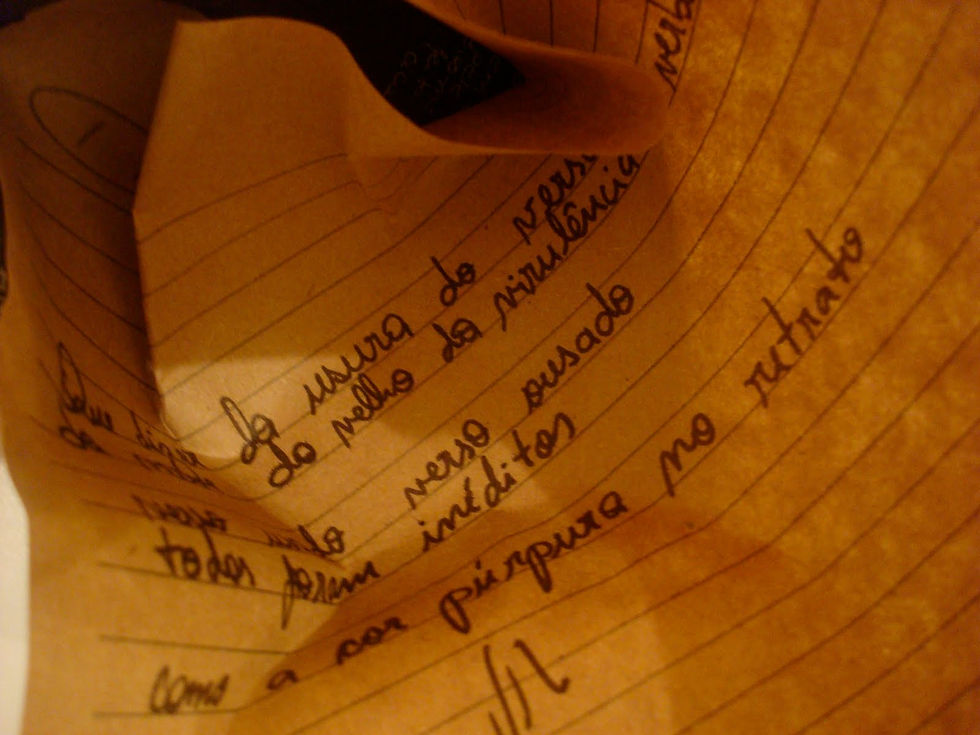 Que dizer da usura do verso
do velho da virulência
verso ousado
todos foram inéditos
como a cor púrpura no retrato